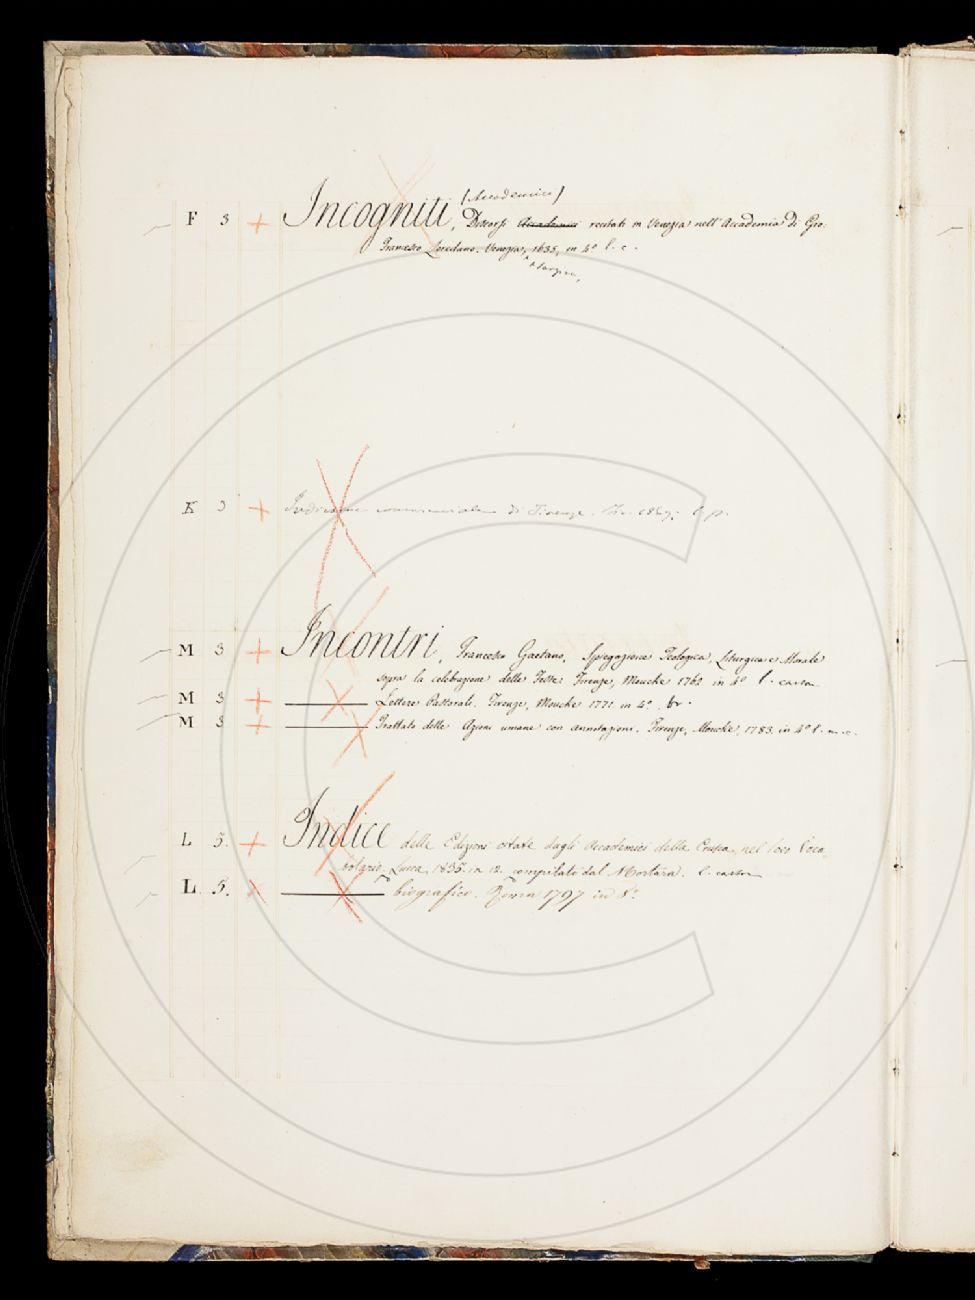 [Accademici]
F 3 + Incogniti, Discorsi Accademici recitati in Venezia nell'Accademia di Gio:
Francesco Loredano. Venezia, 1635, in 4º l. c.
K 3 + commerciale di Firenze. 
M 3 + Incontri, Francesco Gaetano, Spiegazione Teologica, Liturgica e Morale
sopra la celebrazione delle Feste. Firenze, Moucke 1762 in 4º l. carton
M 3 + Lettere Pastorali. Firenze, Moucke 1771. in 4º. br.
M 3 + Trattato delle Azioni umane con annotazioni. Firenze, Moucke, 1783. in 4º l. m. c.
L 5. + Indice delle Edizioni citate dagli Accademici della Crusca nel loro Voca
bolario, Lucca, 1835. in 12. compilato dal Mortara. l. carton
L. 5. × biografico. Roma 1797 in 8º.